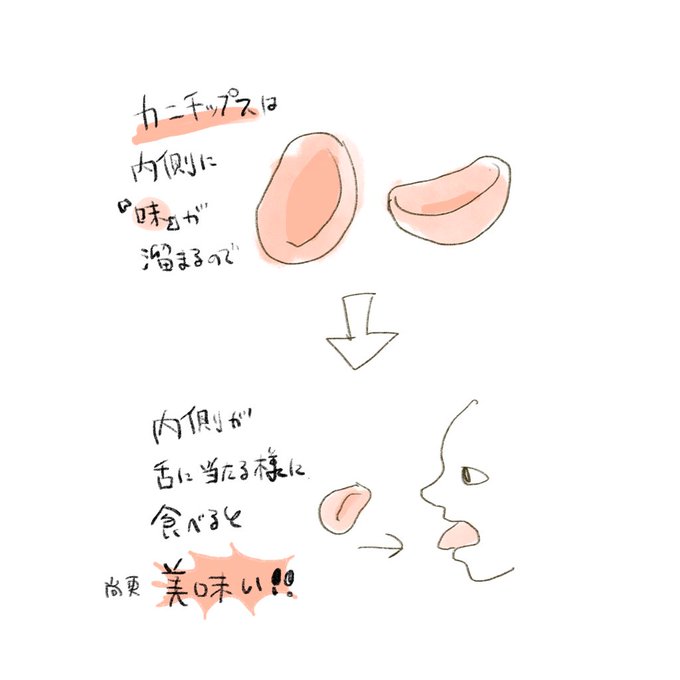 カニチップスは
内側に
『味』が
溜まるので
内側が
舌に当たる様に
食べると
尚更 美味い!!